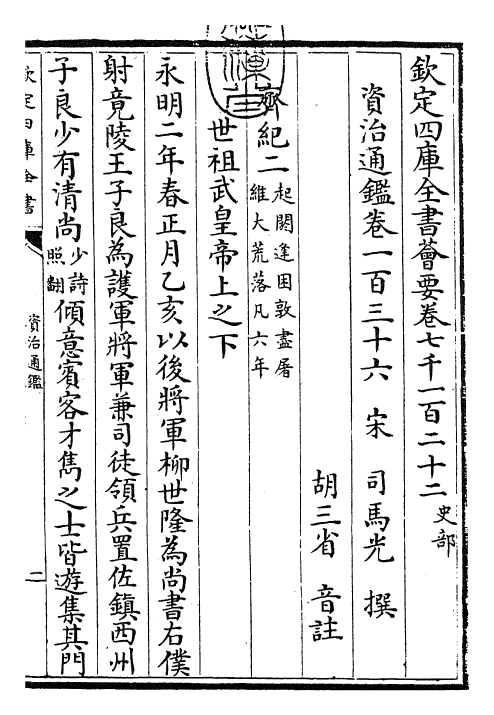 欽定四庫全書薈要卷七千一百二十二 史部
資治通鑑卷一百三十六 宋 司馬光 撰
胡三省 音註
齊紀二 起閼逢困敦盡屠維大荒落凡六年
世祖武皇帝上之下
永明二年春正月乙亥以後將軍柳世隆為尚書右僕
射竟陵王子良為護軍將軍兼司徒領兵置佐鎮西州
子良少有清尚 少詩照翻 傾意賓客才雋之士皆遊集其門
欽定四庫全書
資治通鑑
二